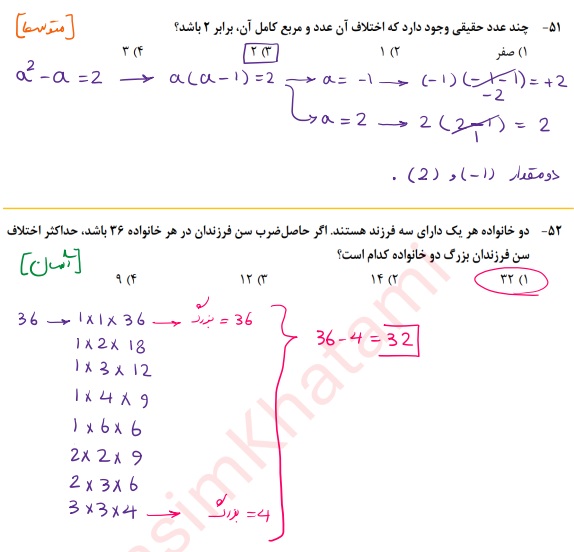 ۵۱- چند عدد حقیقی وجود دارد که اختلاف آن عدد و مربع کامل آن، برابر ۲ باشد؟ [متوسط]
۱) صفر ۲) ۱ ۳) ۲ ۴) ۳
a² - a = 2 → a(a-1) = 2 → a = -1 → (-1)(-1-1) = +2
-2
→ a = 2 → 2(2-1) = 2
1
دو مقدار (-1) و (2) .
۵۲- دو خانواده هر یک دارای سه فرزند هستند. اگر حاصل‌ضرب سن فرزندان در هر خانواده ۳۶ باشد، حداکثر اختلاف
سن فرزندان بزرگ دو خانواده کدام است؟ [آسان]
۱) ۳۲ ۲) ۱۴ ۳) ۱۲ ۴) ۹
36 → 1 x 1 x 36 → بزرگ = 36
1 x 2 x 18
36 - 4 = 32
1 x 3 x 12
1 x 4 x 9
1 x 6 x 6
2 x 2 x 9
2 x 3 x 6
3 x 3 x 4 → بزرگ = 4
asimKhatami